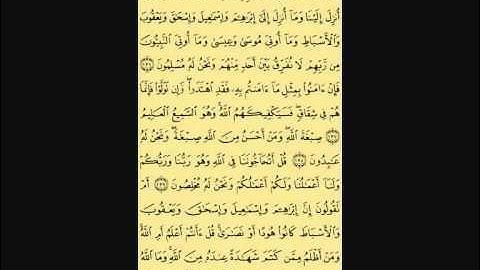 أُنزِلَ إِلَيْنَا وَمَآ أُنزِلَ إِلَىٰٓ إِبْرَٰهِـۧمَ وَإِسْمَـٰعِيلَ وَإِسْحَـٰقَ وَيَعْقُوبَ
وَٱلْأَسْبَاطِ وَمَآ أُوتِىَ مُوسَىٰ وَعِيسَىٰ وَمَآ أُوتِىَ ٱلنَّبِيُّونَ
مِن رَّبِّهِمْ لَا نُفَرِّقُ بَيْنَ أَحَدٍ مِّنْهُمْ وَنَحْنُ لَهُۥ مُسْلِمُونَ ﴿١٣٦﴾
فَإِنْ ءَامَنُوا۟ بِمِثْلِ مَآ ءَامَنتُم بِهِۦ فَقَدِ ٱهْتَدَوا۟ ۖ وَّإِن تَوَلَّوْا۟ فَإِنَّمَا
هُمْ فِى شِقَاقٍ ۖ فَسَيَكْفِيكَهُمُ ٱللَّهُ ۚ وَهُوَ ٱلسَّمِيعُ ٱلْعَلِيمُ
﴿١٣٧﴾ صِبْغَةَ ٱللَّهِ ۖ وَمَنْ أَحْسَنُ مِنَ ٱللَّهِ صِبْغَةً ۖ وَنَحْنُ لَهُۥ
عَـٰبِدُونَ ﴿١٣٨﴾ قُلْ أَتُحَآجُّونَنَا فِى ٱللَّهِ وَهُوَ رَبُّنَا وَرَبُّكُمْ
وَلَنَآ أَعْمَـٰلُنَا وَلَكُمْ أَعْمَـٰلُكُمْ وَنَحْنُ لَهُۥ مُخْلِصُونَ ﴿١٣٩﴾ أَمْ
تَقُولُونَ إِنَّ إِبْرَٰهِـۧمَ وَإِسْمَـٰعِيلَ وَإِسْحَـٰقَ وَيَعْقُوبَ
وَٱلْأَسْبَاطَ كَانُوا۟ هُودًا أَوْ نَصَـٰرَىٰ ۗ قُلْ ءَأَنتُمْ أَعْلَمُ أَمِ ٱللَّهُ ۗ
وَمَنْ أَظْلَمُ مِمَّن كَتَمَ شَهَـٰدَةً عِندَهُۥ مِنَ ٱللَّهِ ۗ وَمَا ٱللَّهُ